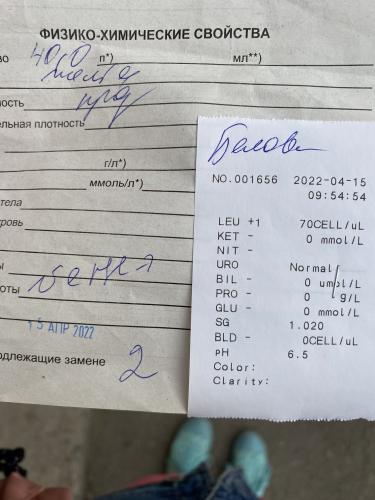 ФИЗИКО-ХИМИЧЕСКИЕ СВОЙСТВА
во 40,0 п*) мл**)
ность
ельная плотность
г/л*)
ммоль/л*)
тела
ровь
ы
оты
15 АПР 2022
одлежащие замене 2
NO.001656 2022-04-15
09:54:54
LEU +1 70CELL/uL
KET - 0 mmol/L
NIT -
URO Normal
BIL - 0 umol/L
PRO - 0 g/L
GLU - 0 mmol/L
SG 1.020
BLD - 0CELL/uL
pH 6.5
Color:
Clarity: